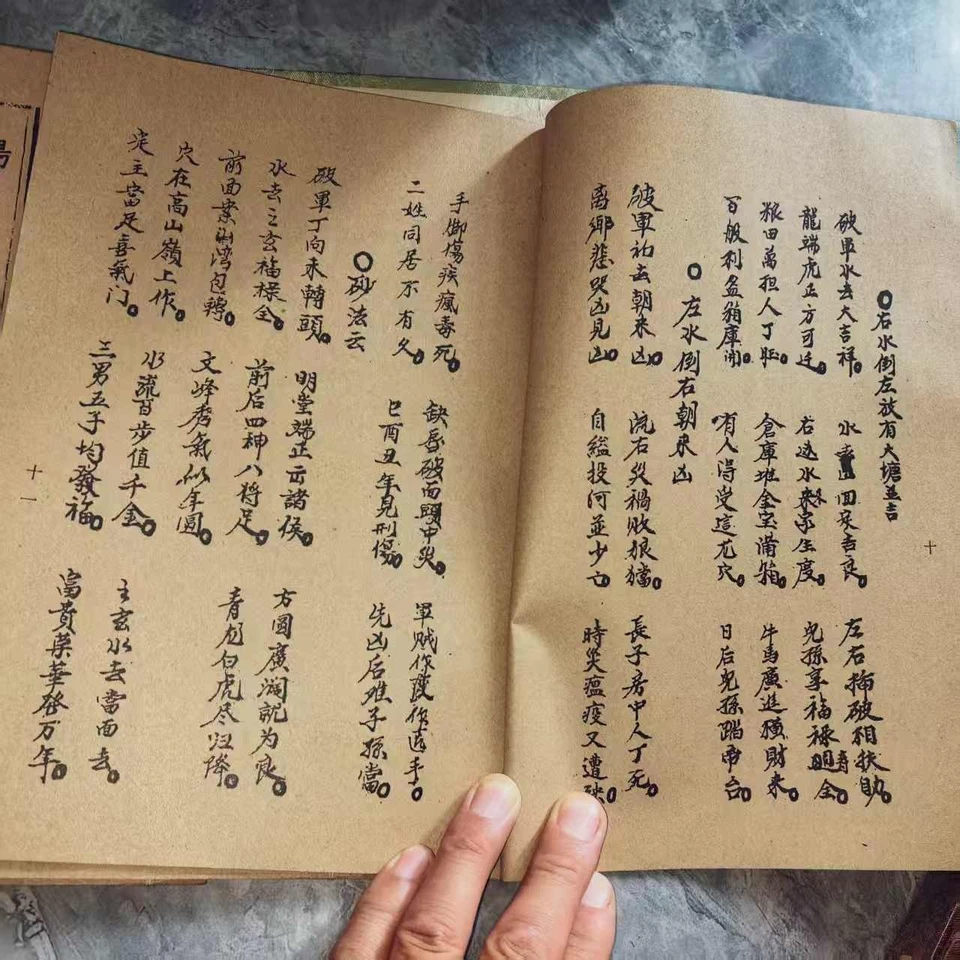 右水倒左放有大塘並吉
破軍水去大吉祥。
水 田亥吉良。
左右掃破相扶助。
龍端虎正方可迁。
右边水来 生度。
兒孫享福祿壽全。
粮田萬担人丁旺。
倉庫堆金宝滿箱。
牛馬廣進積財来。
百般利益箱庫開。
有人得受這龙穴。
日后兒孫踏帝台。
左水倒右朝来凶
破軍 去朝来凶。
流右災禍敗狼
長子房中人丁死。
离鄉悲哭凶見凶。
自縊投河並少亡。
時災瘟疫又遭
十
手脚傷疾瘋毒死。
缺唇破面頭中災。
軍賊作 作 手。
二姓同居不有久。
巳酉丑年見刑傷。
先凶后难子孫當。
砂法云
破軍丁向未轉頭。
明堂端正云諸侯。
方圓廣濶就为良。
水去之玄福祿全。
前后四神八将足。
青龙白虎尽归降。
前面案 湾包轉。
文峰秀氣似羊圓。
穴在高山嶺上作。
水流百步值千金。
之玄水去當面去。
定主當足喜氣门。
三男五子均發福。
富貴榮華發万年。
十一